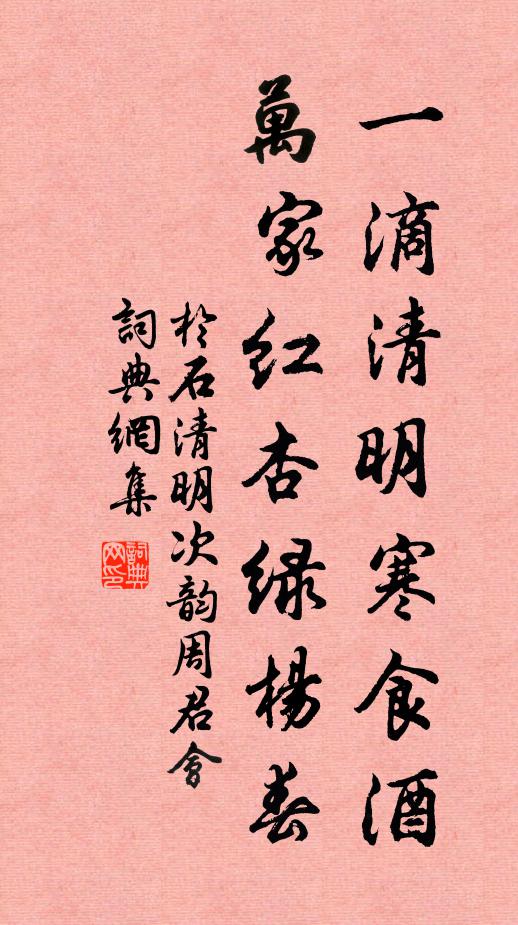 一滴清明寒食酒
萬家红杏緑楊春
於石清明次韵周君會
詞典網集
詞典网印